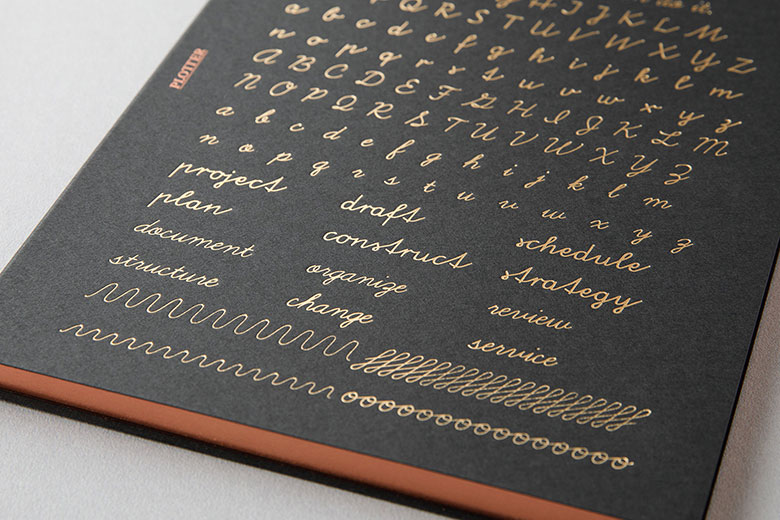 do it.
G H I J K L M
P Q R S T U V W X Y Z
a b c d e f g h i j k l m
n o p q r s t u v w x y z
A B C D E F G H I J K L M
N O P Q R S T U V W X Y Z
a b c d e f g h i j k l m
n o p q r s t u v w x y z
project draft schedule
plan construct strategy
document organize review
structure change service
PLOTTER